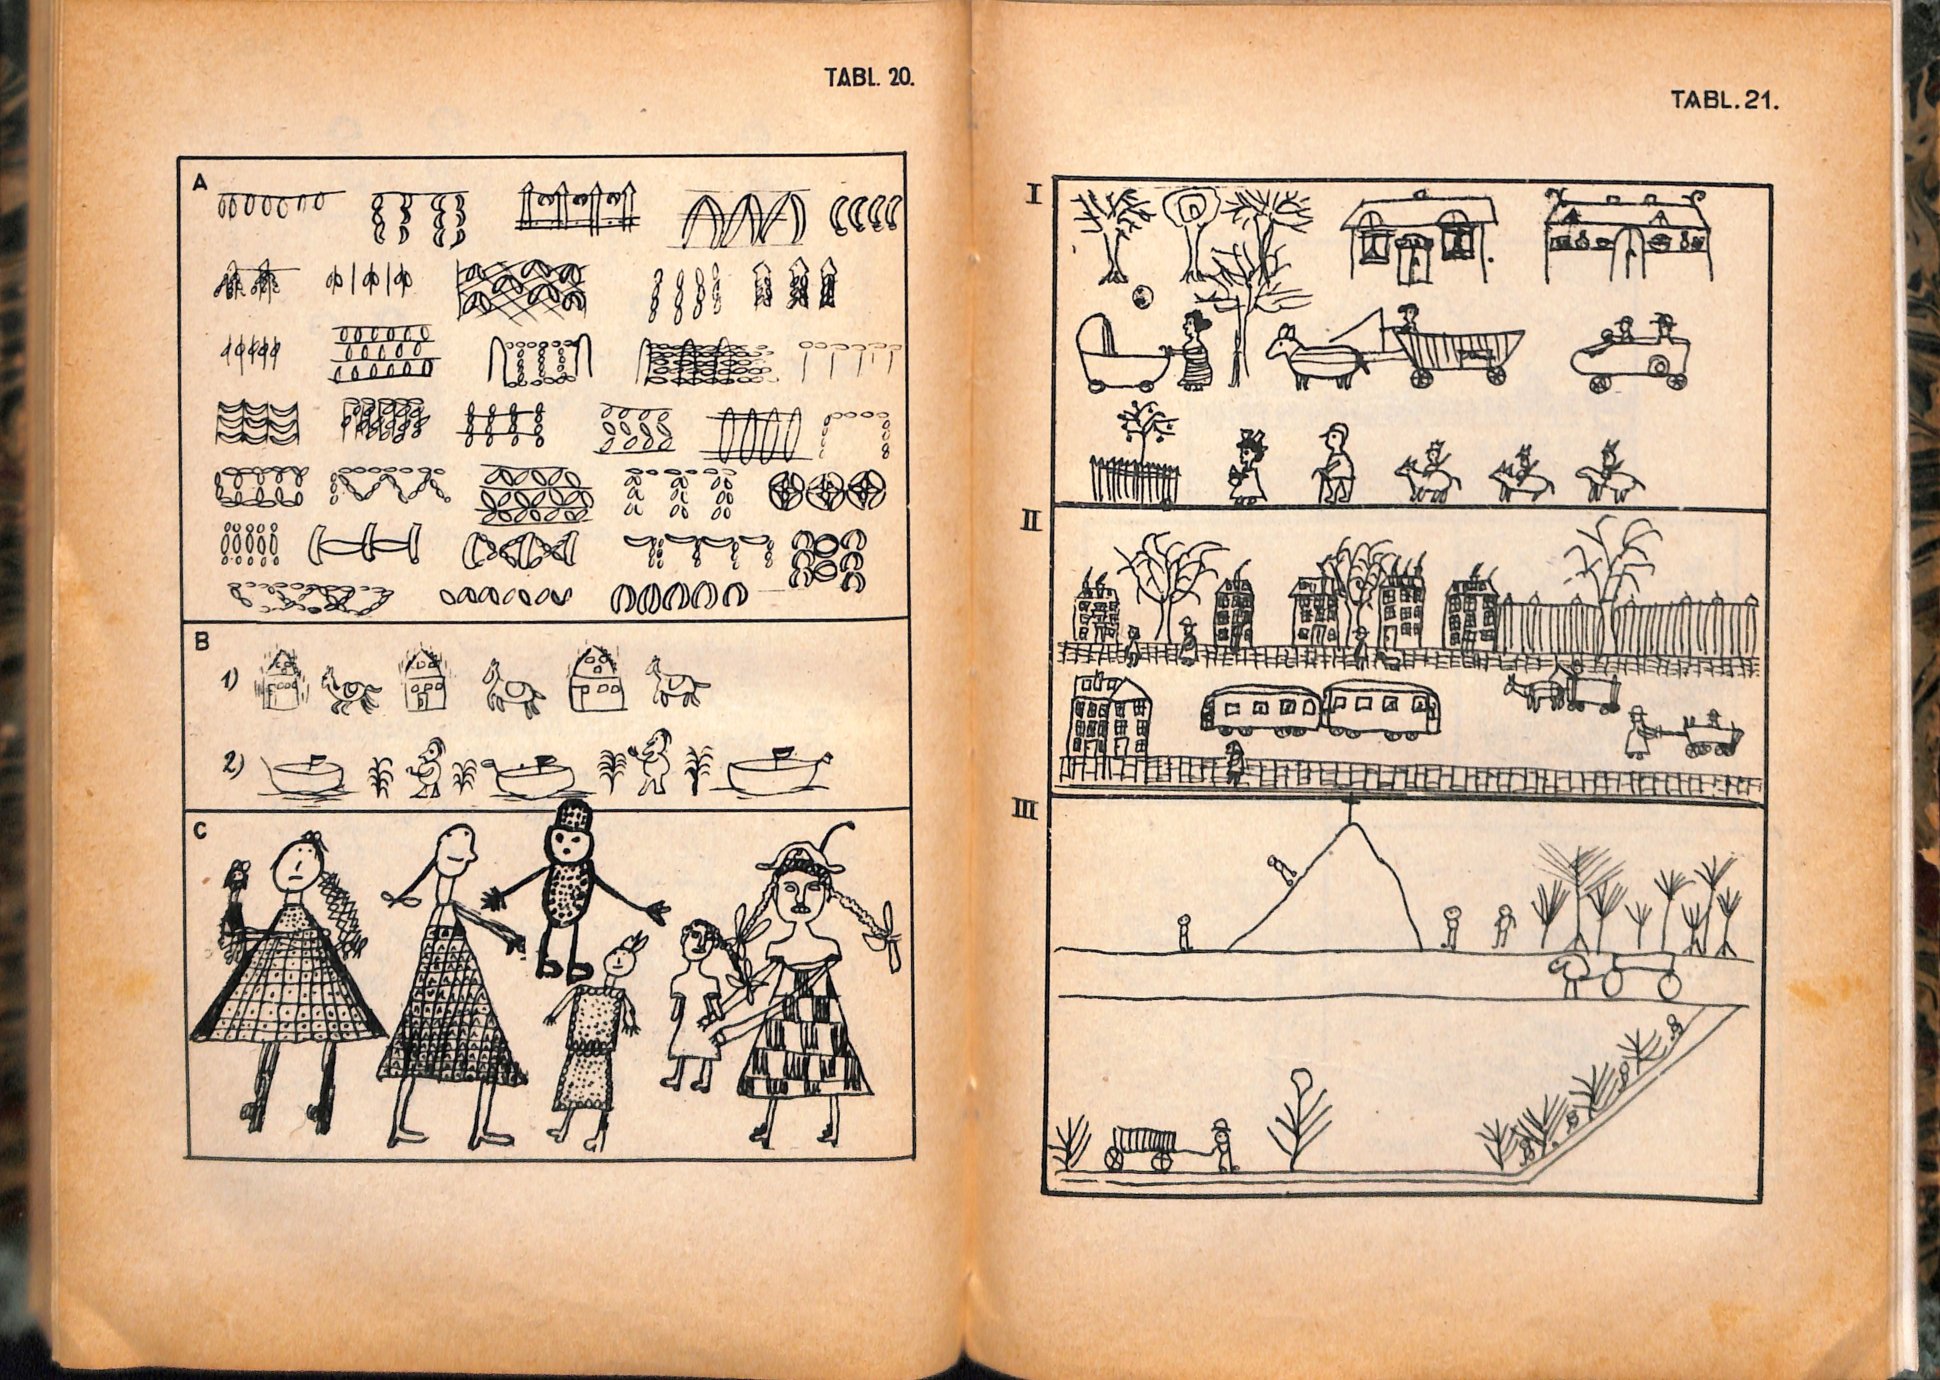 TABL. 20.
A
B
1)
2)
C
TABL. 21.
I
II
III